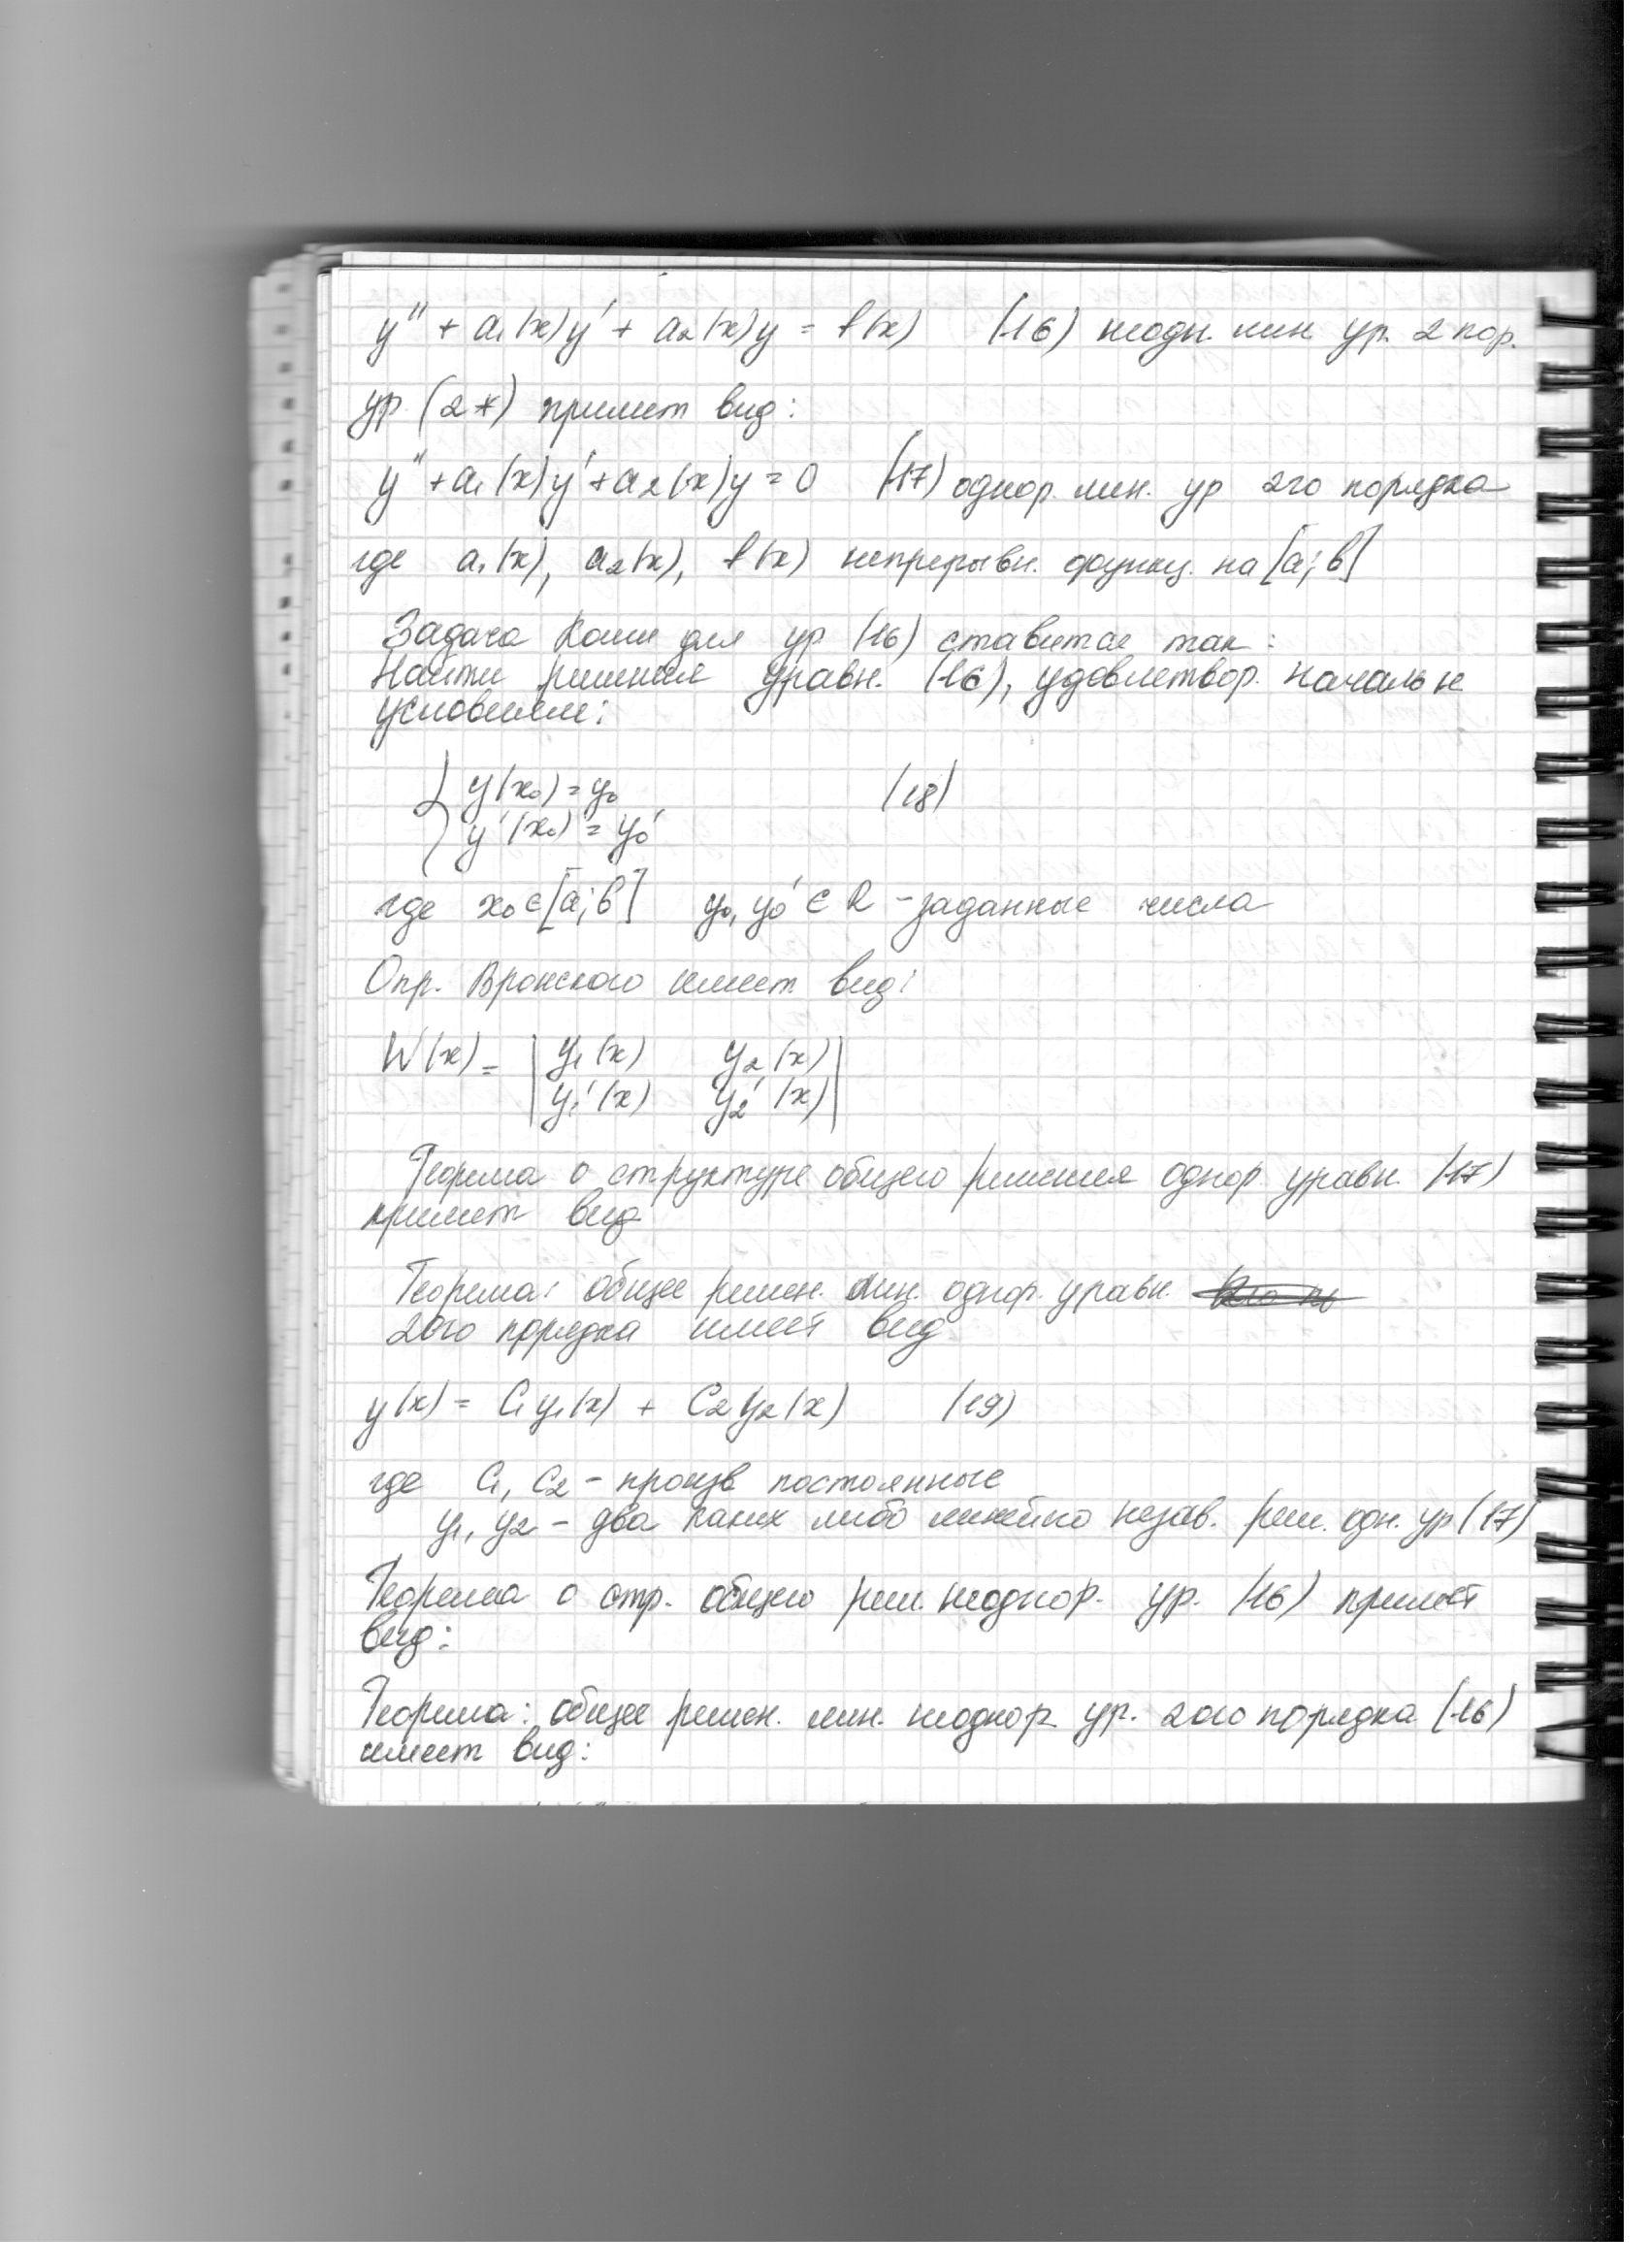 y'' + a₁(x)y' + a₂(x)y = f(x) (16) неодн. лин. ур. 2 пор.
ур (2*) примет вид:
y'' + a₁(x)y' + a₂(x)y = 0 (17) однор. лин. ур 2го порядка
где a₁(x), a₂(x), f(x) непрерывн. функц. на [a; b]
Задача Коши для ур (16) ставится так:
Найти решения уравн. (16), удовлетвор. начальн
условиям:
{ y(x₀) = y₀ (18)
y'(x₀) = y₀'
где x₀ ∈ [a; b] y₀, y₀' ∈ R - заданные числа
Опр. Вронского имеет вид:
W(x) = | y₁(x) y₂(x) |
| y₁'(x) y₂'(x) |
Теорема о структуре общего решения однор. уравн. (17)
примет вид
Теорема: общее решен. лин. однор. уравн.
2ого порядка имеет вид
y(x) = C₁y₁(x) + C₂y₂(x) (19)
где C₁, C₂ - произв постоянные
y₁, y₂ - два каких либо линейно незав. реш. одн. ур (17)
Теорема о стр. общего реш. неоднор. ур. (16) примет
вид:
Теорема: общее решен. лин. неоднор ур. 2ого порядка (16)
имеет вид: